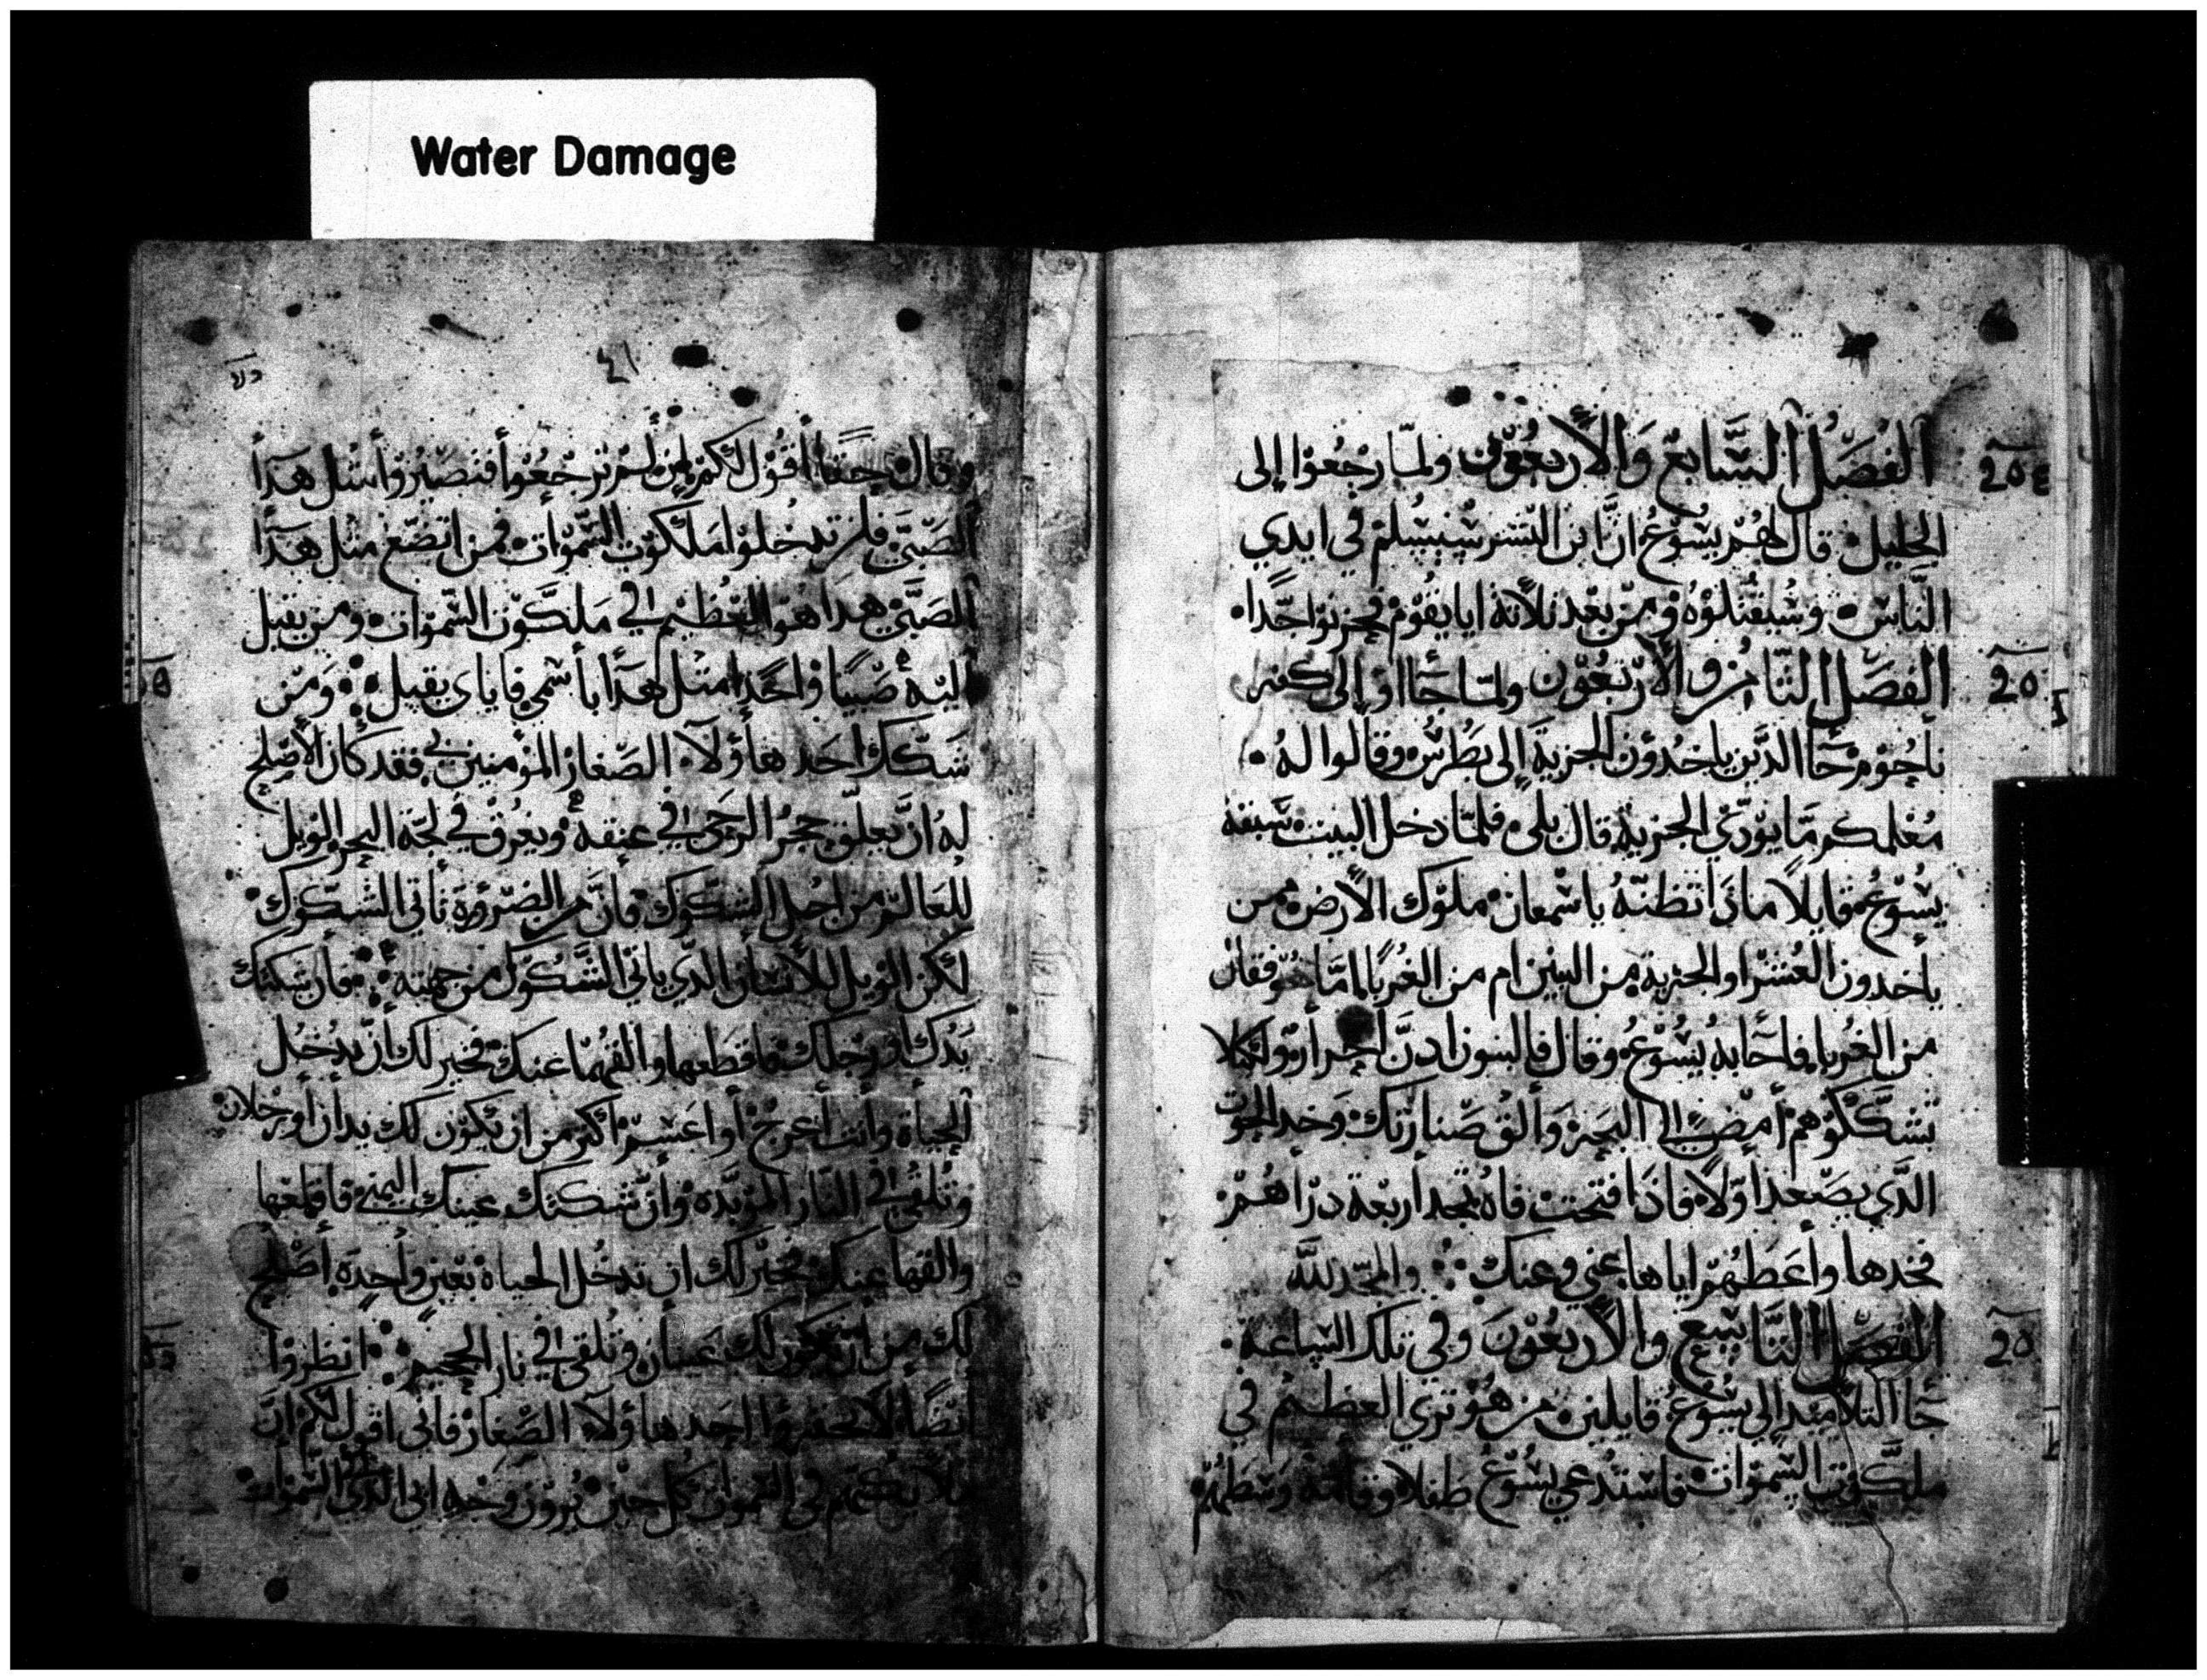 Water Damage
الفصل السابع والاربعون ولما رجعوا الى
الجليل قال لهم يسوع ان ابن البشر سيسلم في ايدي
الناس وسيقتلوه ومن بعد ثلاثة ايا يقوم فحزنوا جدا
الفصل الثامن والاربعون ولما جااوا الى كفر
ناحوم جا الدين ياخدون الجزية الى بطرس وقالوا له
معلمكم ما يودي الجزية قال بلى فلما دخل البيت سبقه
يسوع قايلا مادا تظنه ياسمعان ملوك الارض ممن
ياخدون العشر او الجزية من البنين ام من الغربا فقال
من الغربا فاجابه يسوع وقال فالبنون ادن احرار ولكيلا
نشككوهم امض الى البحر والق صنارتك وخد الحوت
الدي يصعد اولا فادا فتحت فاه تجد اربعة دراهم
فخدها واعطهم اياها عني وعنك والمجد لله
الفصل التاسع والاربعون وفي تلك الساعة
جا التلاميد الى يسوع قايلين من هو تري العظيم في
ملكوت السموات فاستدعي يسوع طفلا وقامه وسطهم
٤١
وقال حقا اقول لكم لين لم ترجعوا فتصيروا مثل هدا
الصبي فلن تدخلوا ملكوت السموات فمن اتضع مثل هدا
الصبي هدا هو العظيم في ملكوت السموات ومن يقبل
اليه صبيا واحدا مثل هدا باسمي فاياي يقبل ومن
شكك احد هاولا الصغار المومنين بي فقد كان الاصلح
له ان يعلق حجر الرحى في عنقه ويغرق في لجة البحر الويل
للعالم من اجل الشكوك فان من الضرورة تاتي الشكوك
لكن الويل للانسان الدي ياتي الشكوك من جهته فان شككتك
يدك او رجلك فاقطعها والقهما عنك فخير لك ان تدخل
الحياة وانت اعرج او اعسم اكثر من ان يكون لك يدان او رجلان
وتلقى في النار الموبدة وان شككتك عينك اليمنى فاقلعها
والقها عنك فخير لك ان تدخل الحياة بعين واحدة اصلح
لك من ان تكون لك عينان وتلقى في نار الجحيم انظروا
ايضا لا تحقروا احد هاولا الصغار فاني اقول لكم ان
ملايكتهم في السموات كل حين يرون وجه ابي الدي السموات